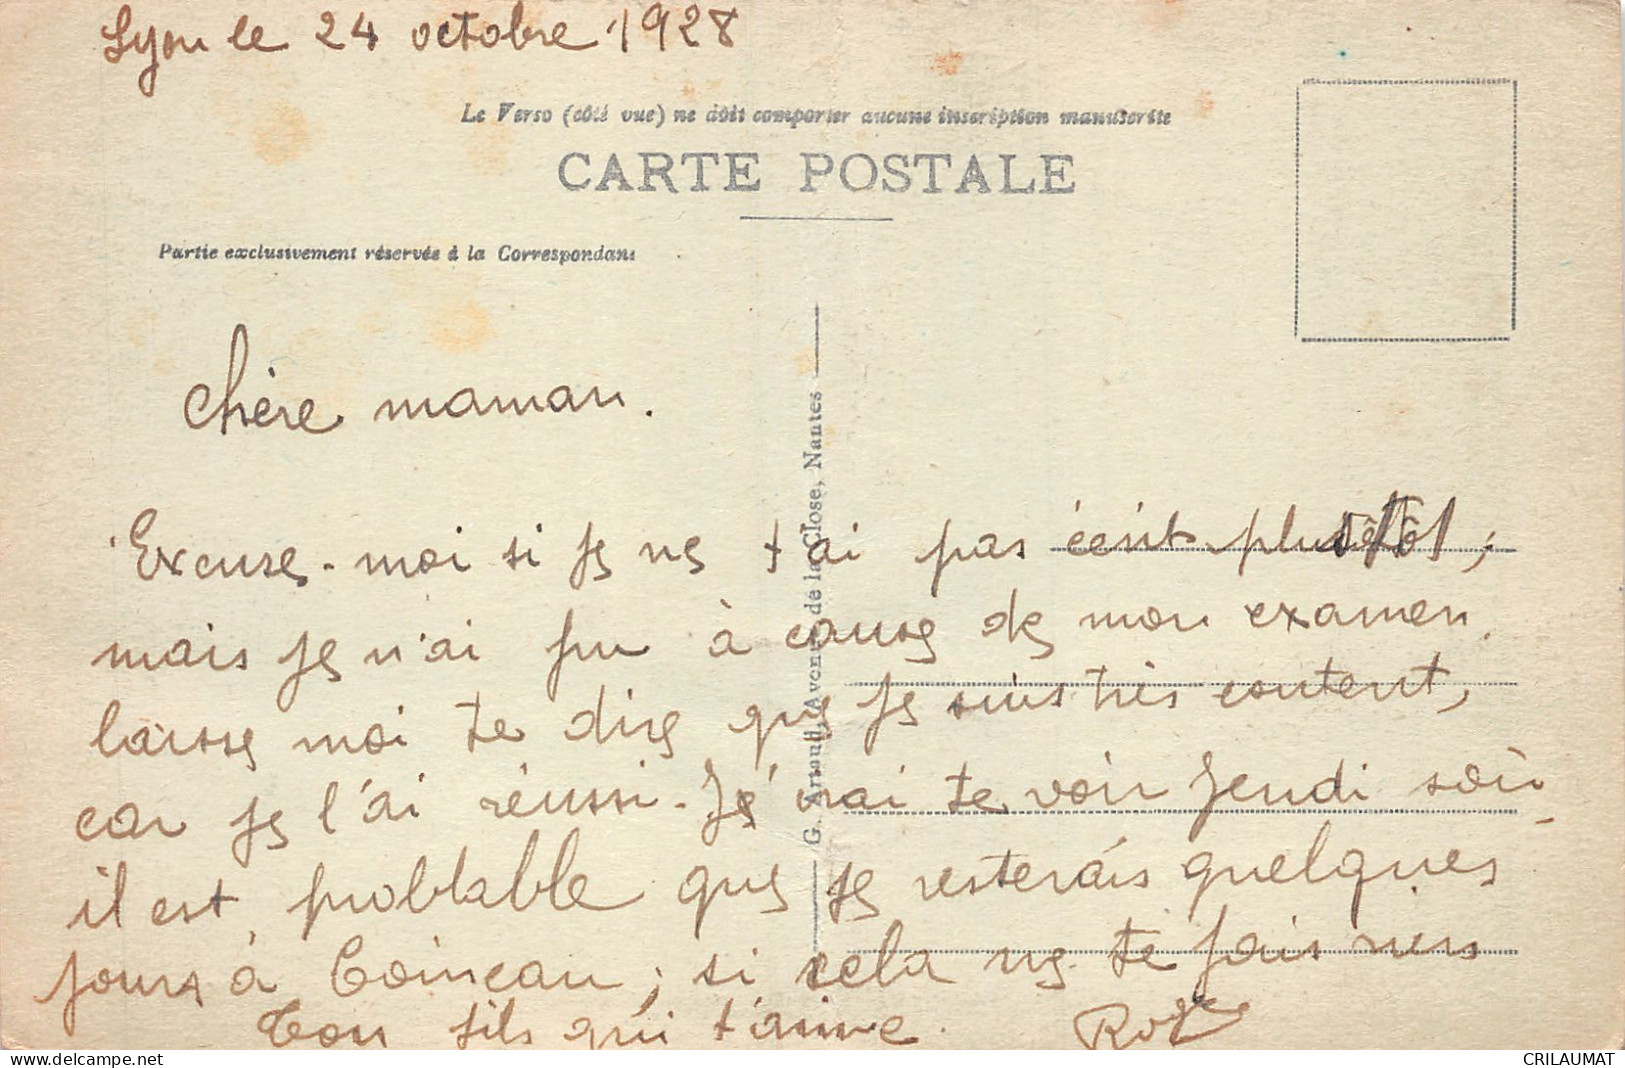 Lyon le 24 octobre 1928
Le Verso (côté vue) ne doit comporter aucune inscription manuscrite
CARTE POSTALE
Partie exclusivement réservée à la Correspondanc
G. Artaud, Avenue de la Close, Nantes
Chère maman.
Excuse-moi si je ne t'ai pas écrit plutôt ;
mais je n'ai pu à cause de mon examen.
laisse moi te dire que je suis très content,
car je l'ai réussi. Je irai te voir jeudi soir
il est problable que je resterais quelques
jours à ; si cela ne te fais rien
Ton fils qui t'aime. Roger
CRILAUMAT